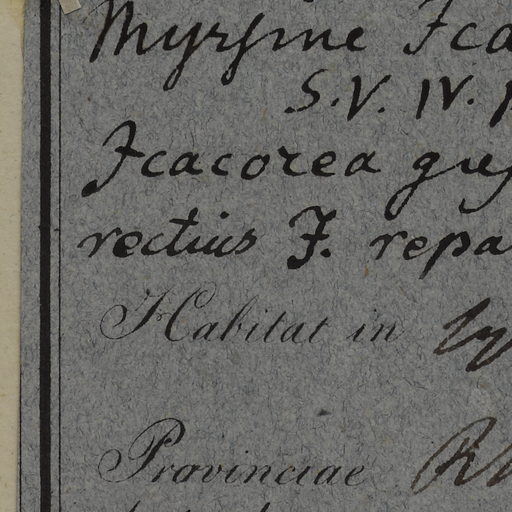 Myrsine Ica
S.V. IV.
Icacorea
rectius I. repa
Habitat in
Provinciae